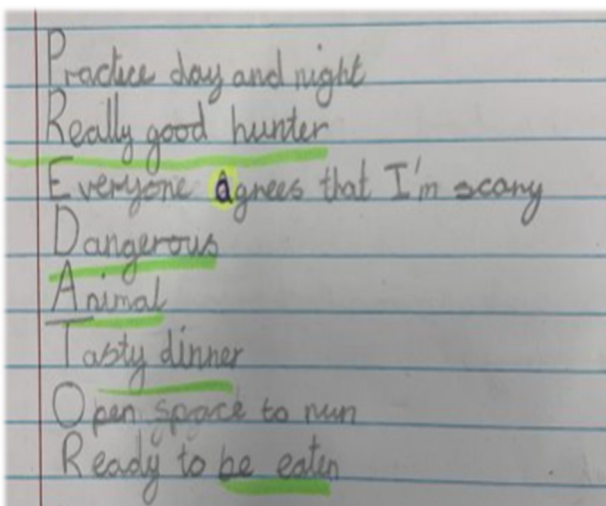 Practice day and night
Really good hunter
Everyone agrees that I'm scary
Dangerous
Animal
Tasty dinner
Open space to run
Ready to be eaten